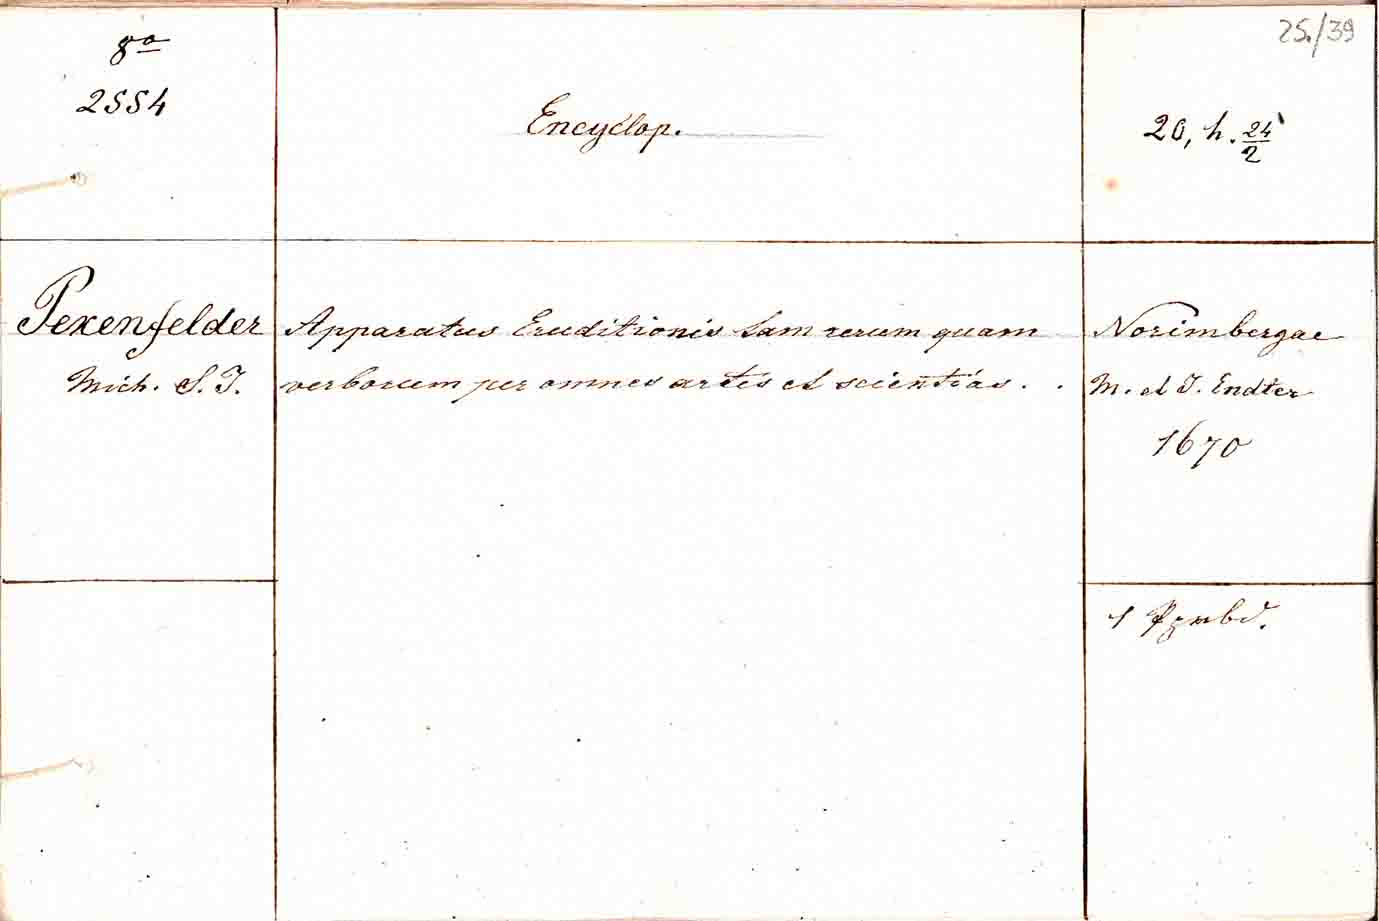 25./39
8º
2554
Encyclop.
20, h. 24/2
Pexenfelder
Mich. S. J.
Apparatus Eruditionis tam rerum quam
verborum per omnes artes et scientias. .
Norimbergae
M. et J. Endter
1670
1 Ppnbd.